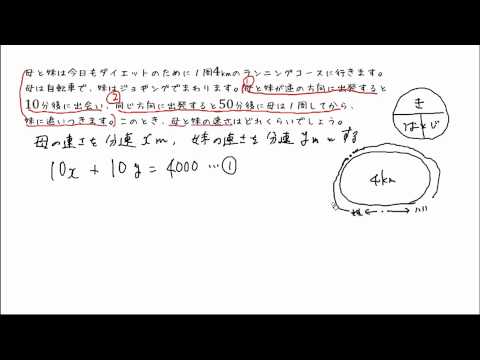 母と妹は今日もダイエットのために1周4kmのランニングコースに行きます。
母は自転車で、妹はジョギングでまわります。①母と妹が逆の方向に出発すると
10分後に出会い、②同じ方向に出発すると50分後に母は1周してから、
妹に追いつきます。このとき、母と妹の速さはどれくらいでしょう。
母の速さを分速 x m, 妹の速さを分速 y m とする
10x + 10y = 4000 … ①
き
は じ
4km
妹 ← ・ →